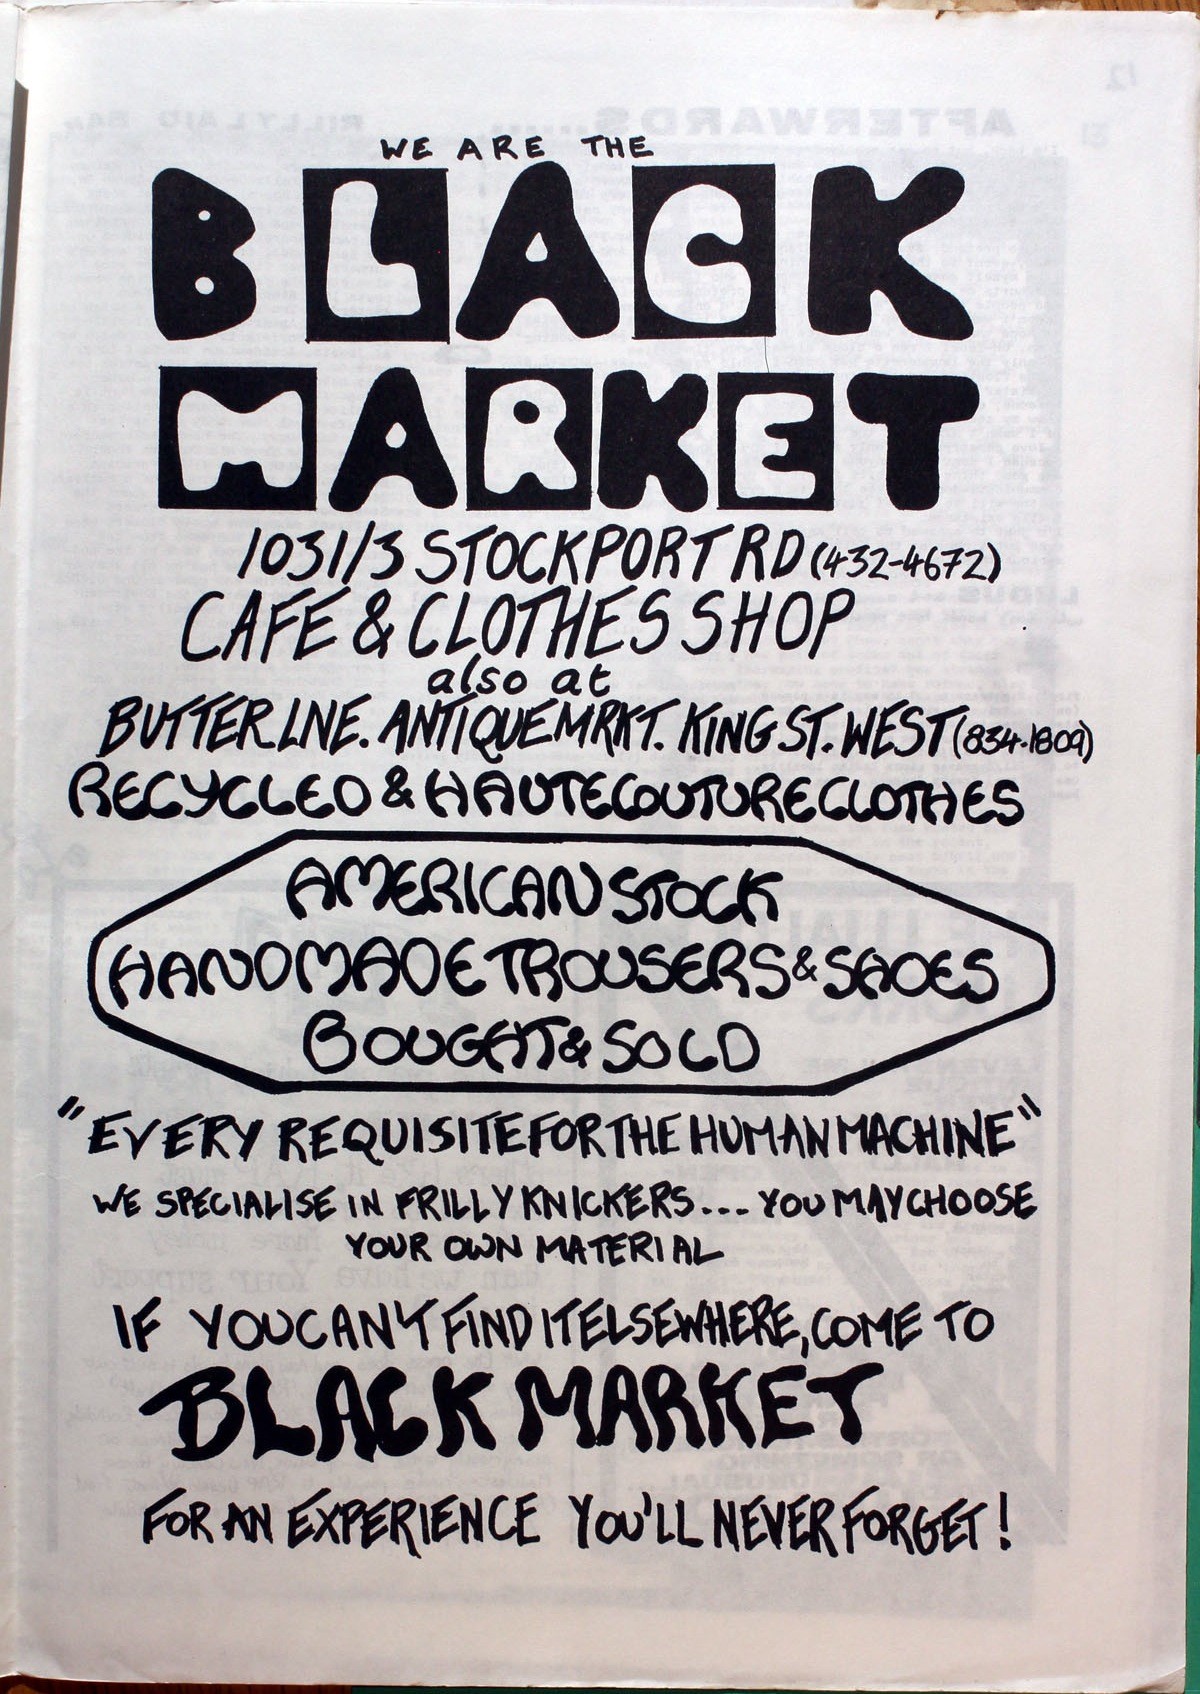 WE ARE THE
BLACK
MARKET
1031/3 STOCKPORT RD (432-4672)
CAFE & CLOTHES SHOP
also at
BUTTER LNE. ANTIQUE MRKT. KING ST. WEST (834-1809)
RECYCLED & HAUTE COUTURE CLOTHES
AMERICAN STOCK
HANDMADE TROUSERS & SHOES
BOUGHT & SOLD
"EVERY REQUISITE FOR THE HUMAN MACHINE"
WE SPECIALISE IN FRILLY KNICKERS... YOU MAY CHOOSE
YOUR OWN MATERIAL
IF YOU CAN'T FIND IT ELSEWHERE, COME TO
BLACK MARKET
FOR AN EXPERIENCE YOU'LL NEVER FORGET!